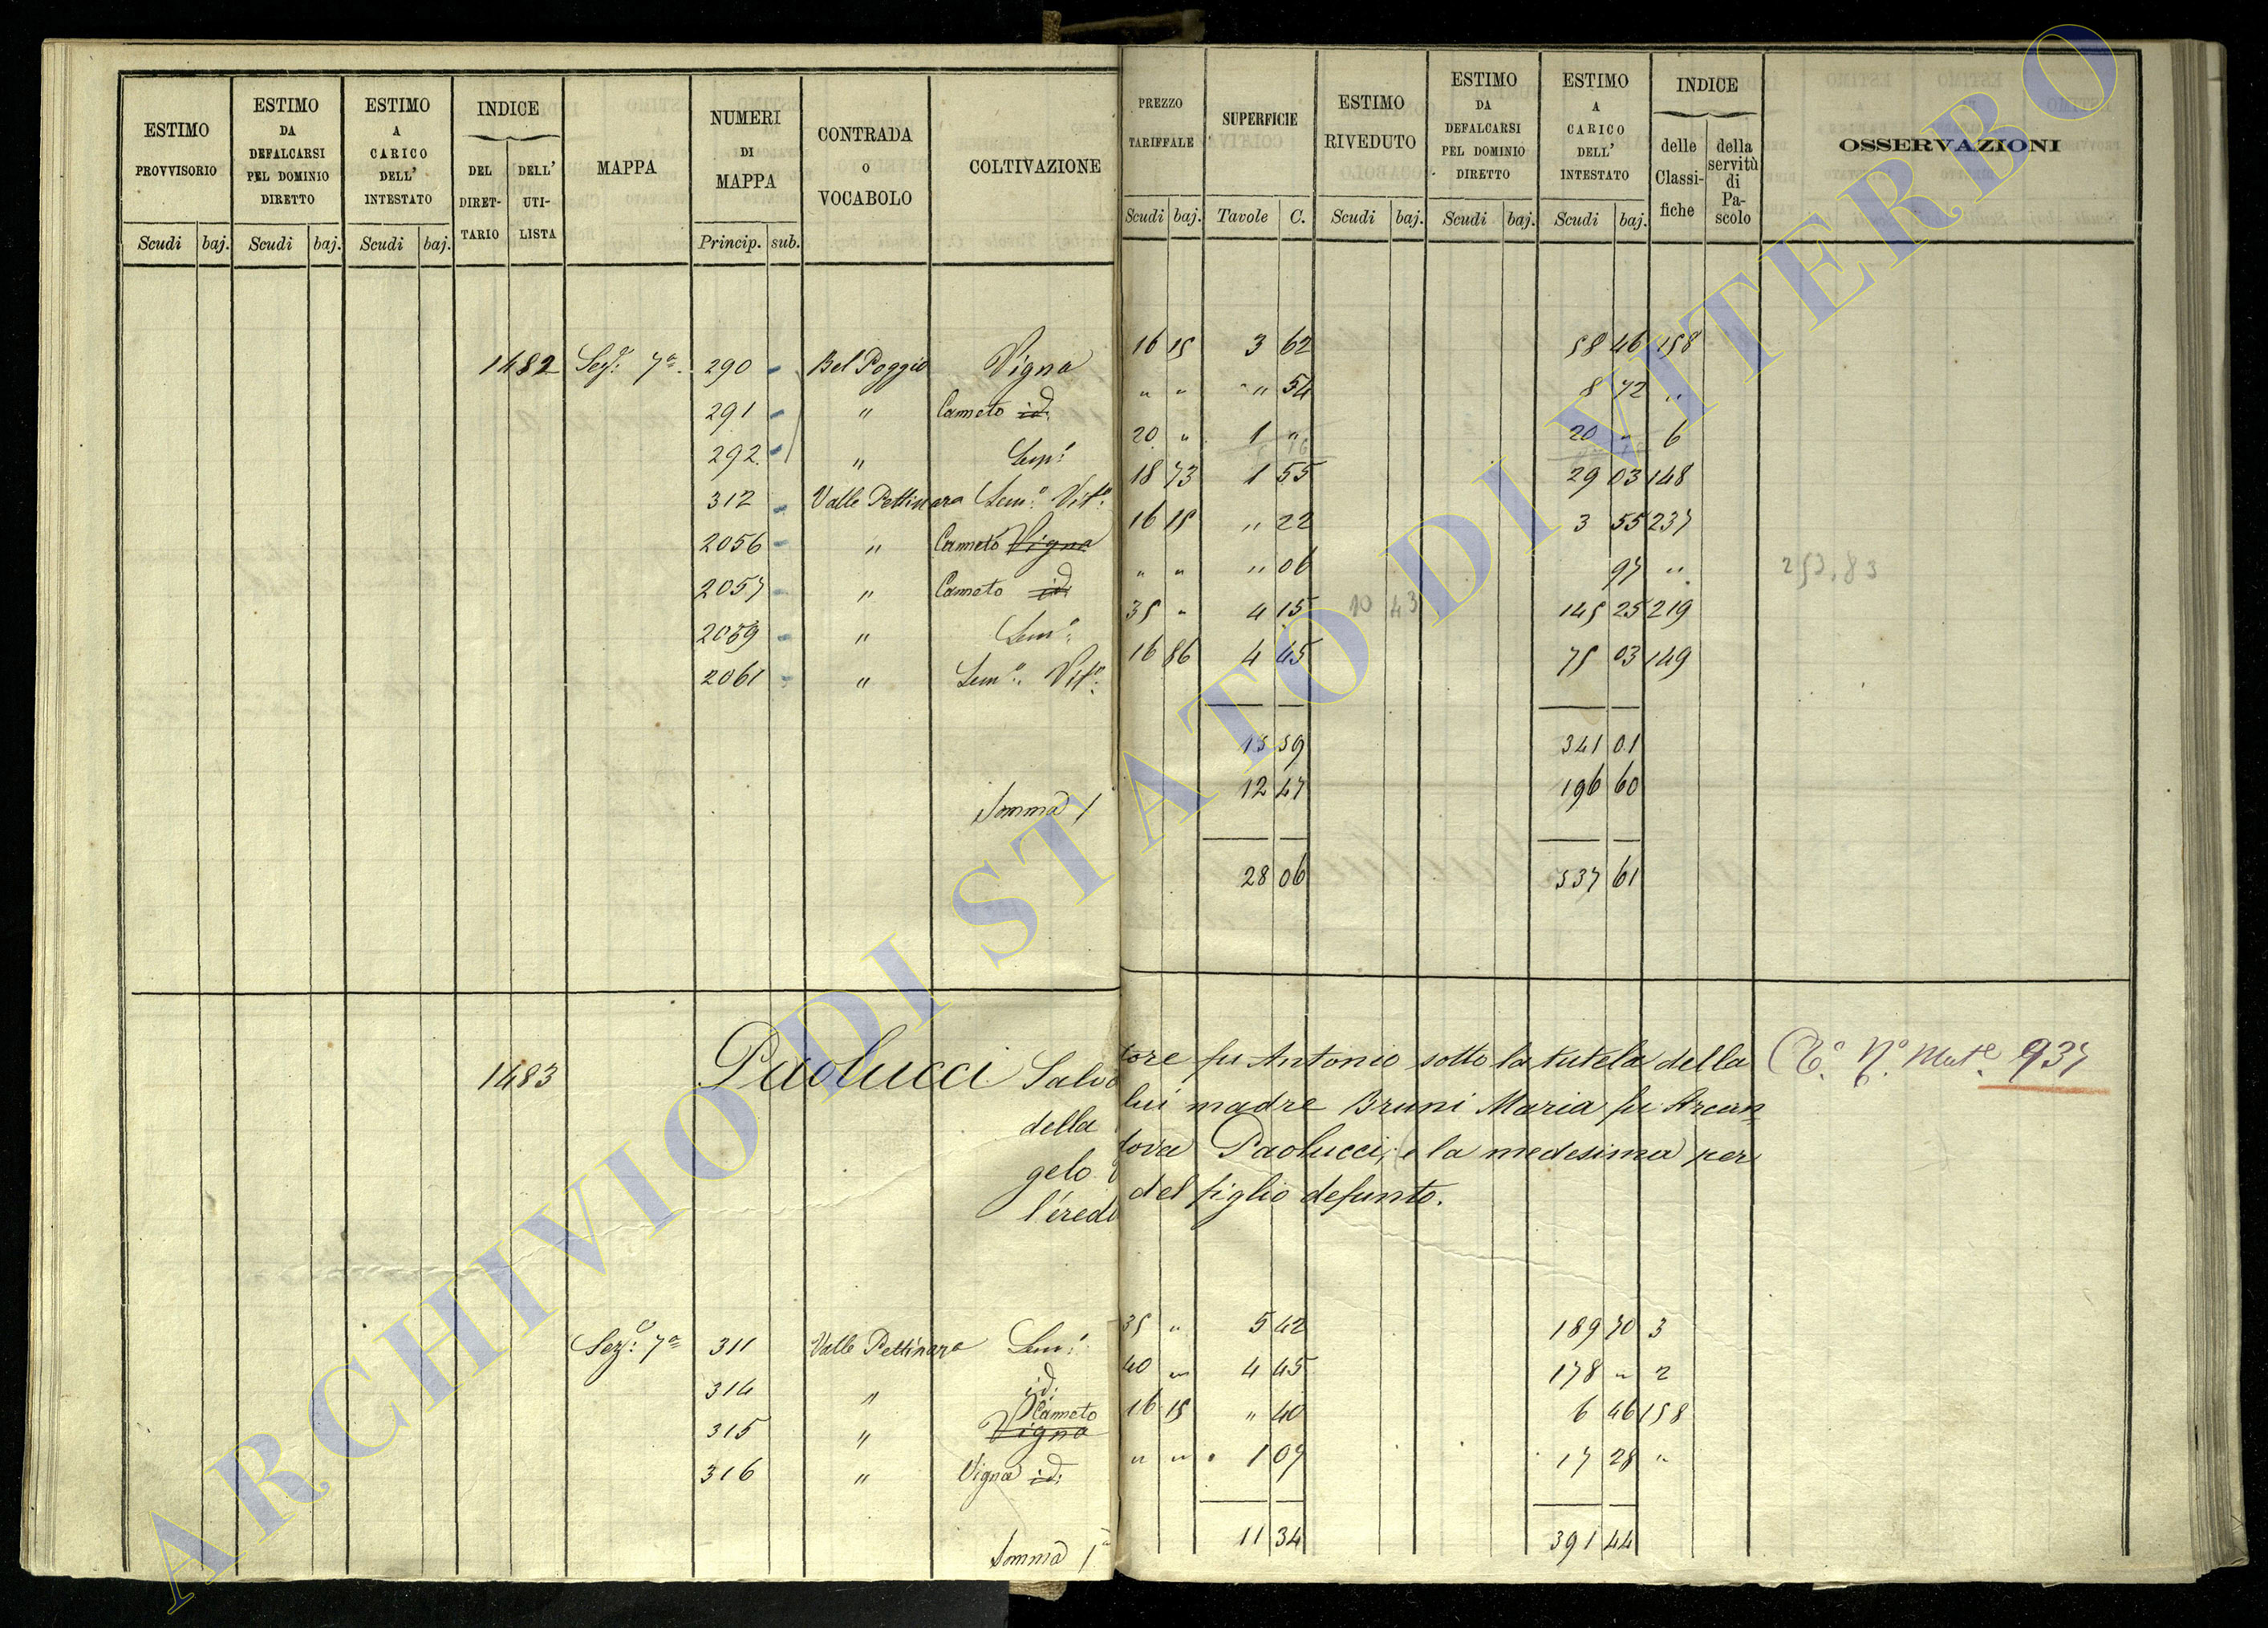 ESTIMO PROVVISORIO
Scudi baj.
ESTIMO DA DEFALCARSI PEL DOMINIO DIRETTO
Scudi baj.
ESTIMO A CARICO DELL' INTESTATO
Scudi baj.
INDICE
DEL DIRET-TARIO
DELL' UTI-LISTA
MAPPA
NUMERI DI MAPPA
Princip. sub.
CONTRADA o VOCABOLO
COLTIVAZIONE
PREZZO TARIFFALE
Scudi baj.
SUPERFICIE
Tavole C.
ESTIMO RIVEDUTO
Scudi baj.
ESTIMO DA DEFALCARSI PEL DOMINIO DIRETTO
Scudi baj.
ESTIMO A CARICO DELL' INTESTATO
Scudi baj.
INDICE
delle Classi-fiche
della servitù di Pa-scolo
OSSERVAZIONI
1482 Sez.e 7a 290 Bel Poggio Vigna 16 15 3 62 58 46 158
291 " Canneto id. " " " 54 8 72 "
292 " Sem.o 20 " 1 " 20 " 6
312 Valle Pettinara Sem.o Vit.o 18 73 1 55 29 03 148
2056 " Canneto Vigna 16 15 " 22 3 55 237
2057 " Canneto id. " " " 06 97 "
2059 " Sem.o 35 " 4 15 10 43 145 25 219
2061 " Sem.o Vit.o 16 86 4 45 75 03 149
15 59 341 01
Somma 1 12 47 196 60
28 06 537 61
1483 Paolucci Salvatore fu Antonio sotto la tutela della
della lui madre Bruni Maria fu Arcan=
gelo vedova Paolucci, e la medesima per
l'eredi del figlio defunto.
N.o Mat.e 937
Sez.e 7a 311 Valle Pettinara Sem.o 35 " 5 42 189 70 3
314 " id. 40 " 4 45 178 " 2
315 " Canneto Vigna 16 15 " 40 6 46 158
316 " Vigna id. " " 1 07 17 28 "
Somma 1a 11 34 391 44
ARCHIVIO DI STATO DI VITERBO